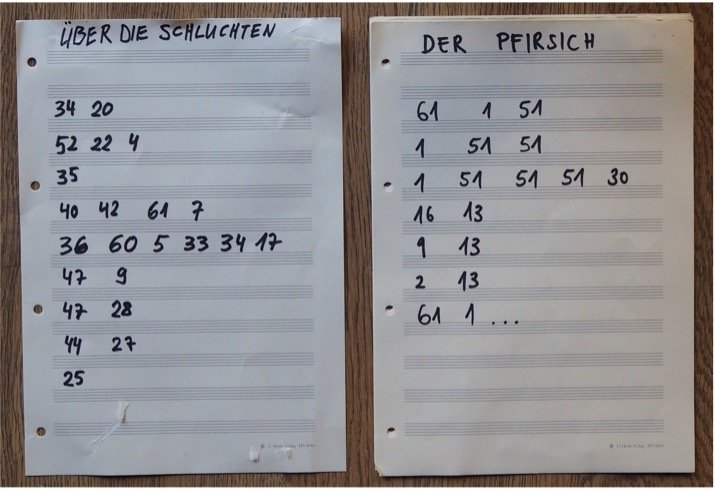 ÜBER DIE SCHLUCHTEN
34 20
52 22 4
35
40 42 61 7
36 60 5 33 34 17
47 9
47 28
44 27
25
DER PFIRSICH
61 1 51
1 51 51
1 51 51 51 30
16 13
9 13
2 13
61 1 ...